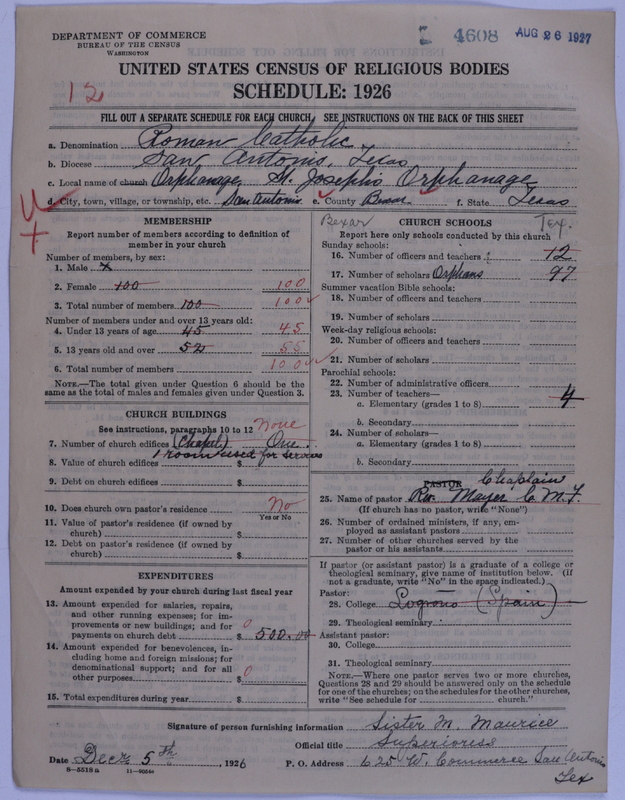 DEPARTMENT OF COMMERCE
BUREAU OF THE CENSUS
WASHINGTON
4608 AUG 26 1927
UNITED STATES CENSUS OF RELIGIOUS BODIES
12
SCHEDULE: 1926
FILL OUT A SEPARATE SCHEDULE FOR EACH CHURCH. SEE INSTRUCTIONS ON THE BACK OF THIS SHEET
a. Denomination Roman Catholic
b. Diocese San Antonio, Texas
c. Local name of church Orphanage St. Joseph's Orphanage
d. City, town, village, or township, etc. San Antonio e. County Bexar f. State Texas
MEMBERSHIP
Report number of members according to definition of
member in your church
Number of members, by sex:
1. Male x
2. Female 100 100
3. Total number of members 100 100
Number of members under and over 13 years old:
4. Under 13 years of age 45 45
5. 13 years old and over 55
6. Total number of members 100
NOTE.—The total given under Question 6 should be the
same as the total of males and females given under Question 3.
CHURCH BUILDINGS
See instructions, paragraphs 10 to 12 None
7. Number of church edifices (Chapel) One.
1 room used for services
8. Value of church edifices $
9. Debt on church edifices $
10. Does church own pastor's residence No
Yes or No
11. Value of pastor's residence (if owned by
church) $
12. Debt on pastor's residence (if owned by
church) $
EXPENDITURES
Amount expended by church during last fiscal year
13. Amount expended for salaries, repairs,
and other running expenses; for im-
provements or new buildings; and for
payments on church debt $ 500.00 0
14. Amount expended for benevolences, in-
cluding home and foreign missions; for
denominational support; and for all
other purposes $ 0
15. Total expenditures during year $
Bexar Tex.
CHURCH SCHOOLS
Report here only schools conducted by this church
Sunday schools:
16. Number of officers and teachers 12
17. Number of scholars Orphans 97
Summer vacation Bible schools:
18. Number of officers and teachers
19. Number of scholars
Week-day religious schools:
20. Number of officers and teachers
21. Number of scholars
Parochial schools:
22. Number of administrative officers
23. Number of teachers—
a. Elementary (grades 1 to 8) 4
b. Secondary
24. Number of scholars—
a. Elementary (grades 1 to 8)
b. Secondary
PASTOR Chaplain
25. Name of pastor Rev. Mayer C. M. F.
(If church has no pastor, write "None")
26. Number of ordained ministers, if any, em-
ployed as assistant pastors
27. Number of other churches served by the
pastor or his assistants
If pastor (or assistant pastor) is a graduate of a college or
theological seminary, give name of institution below. (If
not a graduate, write "No" in the space indicated.)
Pastor:
28. College Logroño (Spain)
29. Theological seminary
Assistant pastor:
30. College
31. Theological seminary
NOTE.—Where one pastor serves two or more churches,
Questions 28 and 29 should be answered only on the schedule
for one of the churches; on the schedules for the other churches,
write "See schedule for church."
Signature of person furnishing information Sister M. Maurice
Official title Superioress
Date Dec. 5th, 1926 P. O. Address 625 W. Commerce San Antonio
Tex
8—5518a 11—9054